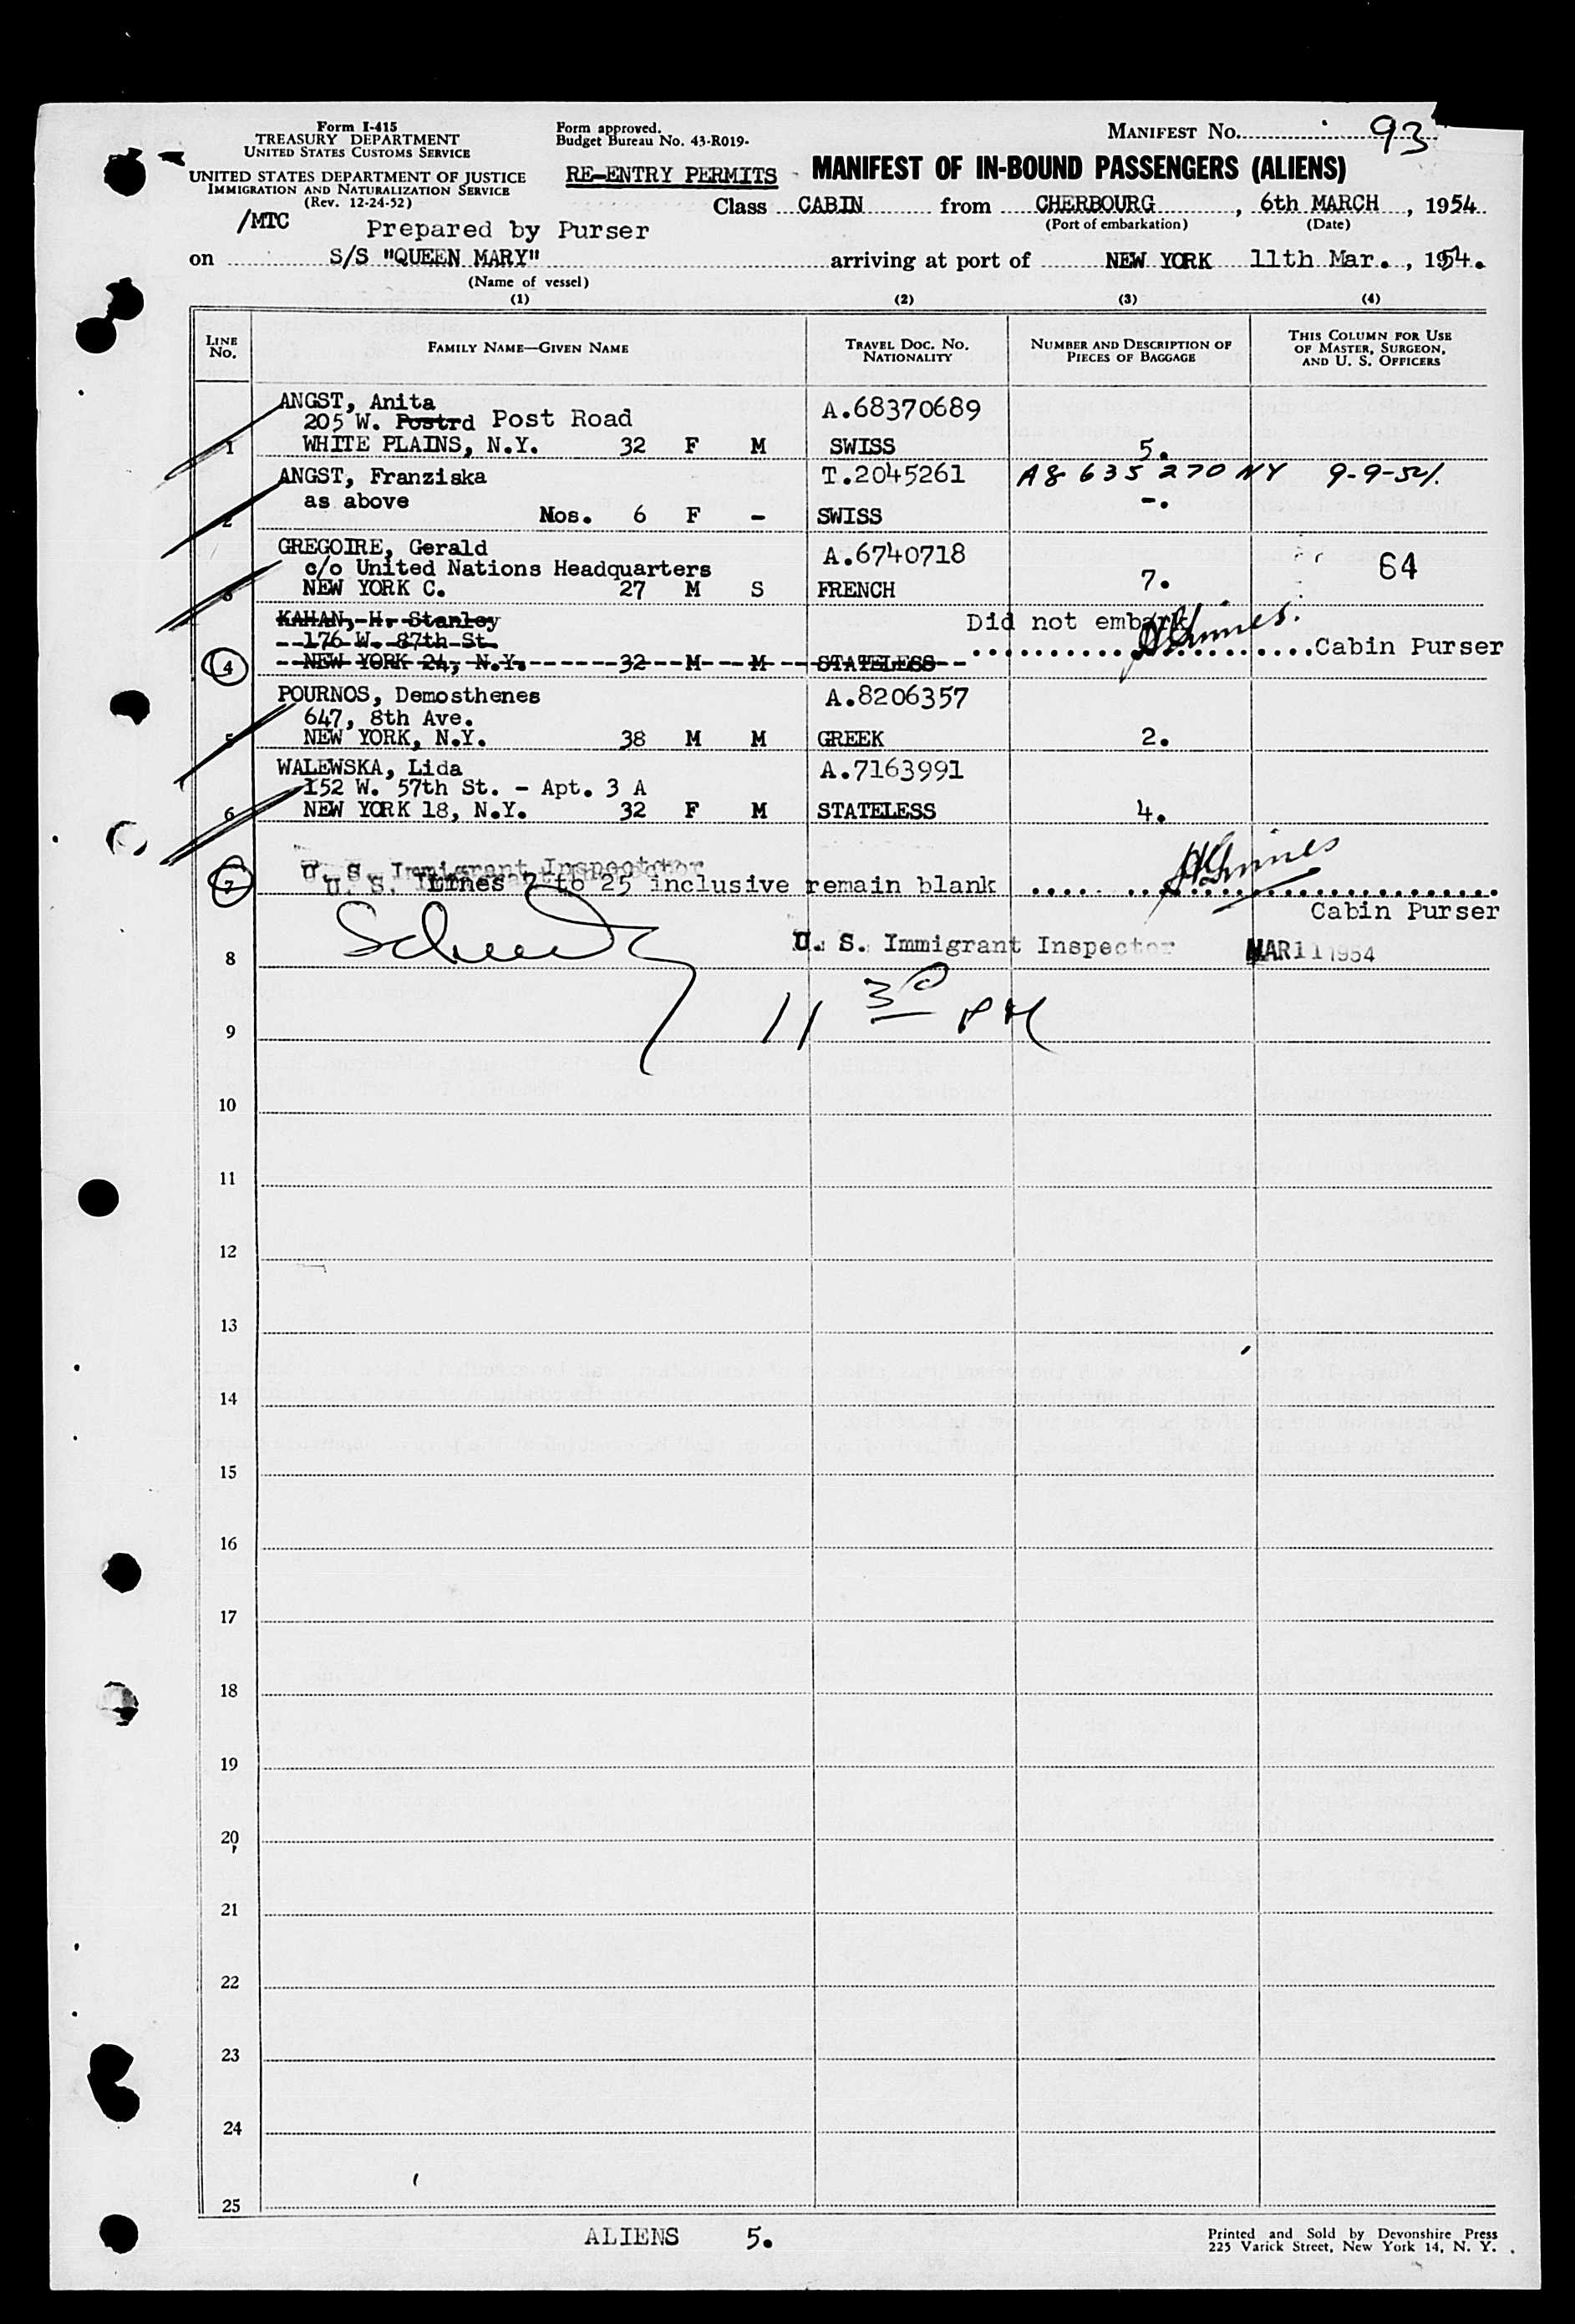 Form I-415
TREASURY DEPARTMENT
UNITED STATES CUSTOMS SERVICE
UNITED STATES DEPARTMENT OF JUSTICE
IMMIGRATION AND NATURALIZATION SERVICE
(Rev. 12-24-52)
/MTC
Form approved.
Budget Bureau No. 43-R019-
MANIFEST No. 93
RE-ENTRY PERMITS MANIFEST OF IN-BOUND PASSENGERS (ALIENS)
Class CABIN from CHERBOURG, 6th MARCH, 1954
(Port of embarkation) (Date)
Prepared by Purser
on S/S "QUEEN MARY" arriving at port of NEW YORK 11th Mar., 1954.
(Name of vessel)
(1) (2) (3) (4)
LINE No. FAMILY NAME—GIVEN NAME TRAVEL DOC. No. NATIONALITY NUMBER AND DESCRIPTION OF PIECES OF BAGGAGE THIS COLUMN FOR USE OF MASTER, SURGEON, AND U. S. OFFICERS
ANGST, Anita A.68370689
205 W. Postrd Post Road
1 WHITE PLAINS, N.Y. 32 F M SWISS 5.
ANGST, Franziska T.2045261 A8 635 270 NY 9-9-54.
as above -.
2 Nos. 6 F - SWISS
GREGOIRE, Gerald A.6740718 64
c/o United Nations Headquarters
3 NEW YORK C. 27 M S FRENCH 7.
KAHAN, H. Stanley Did not embark
176 W. 87th St. Cabin Purser
4 NEW YORK 24, N.Y. 32 M M STATELESS
POURNOS, Demosthenes A.8206357
647, 8th Ave.
5 NEW YORK, N.Y. 38 M M GREEK 2.
WALEWSKA, Lida A.7163991
152 W. 57th St. - Apt. 3 A
6 NEW YORK 18, N.Y. 32 F M STATELESS 4.
U. S. Immigrant Inspector
7 U. S. Lines 7 to 25 inclusive remain blank
Cabin Purser
U. S. Immigrant Inspector MAR 11 1954
8
11 30 PM
9
10
11
12
13
14
15
16
17
18
19
20
21
22
23
24
25
ALIENS 5.
Printed and Sold by Devonshire Press
225 Varick Street, New York 14, N. Y.